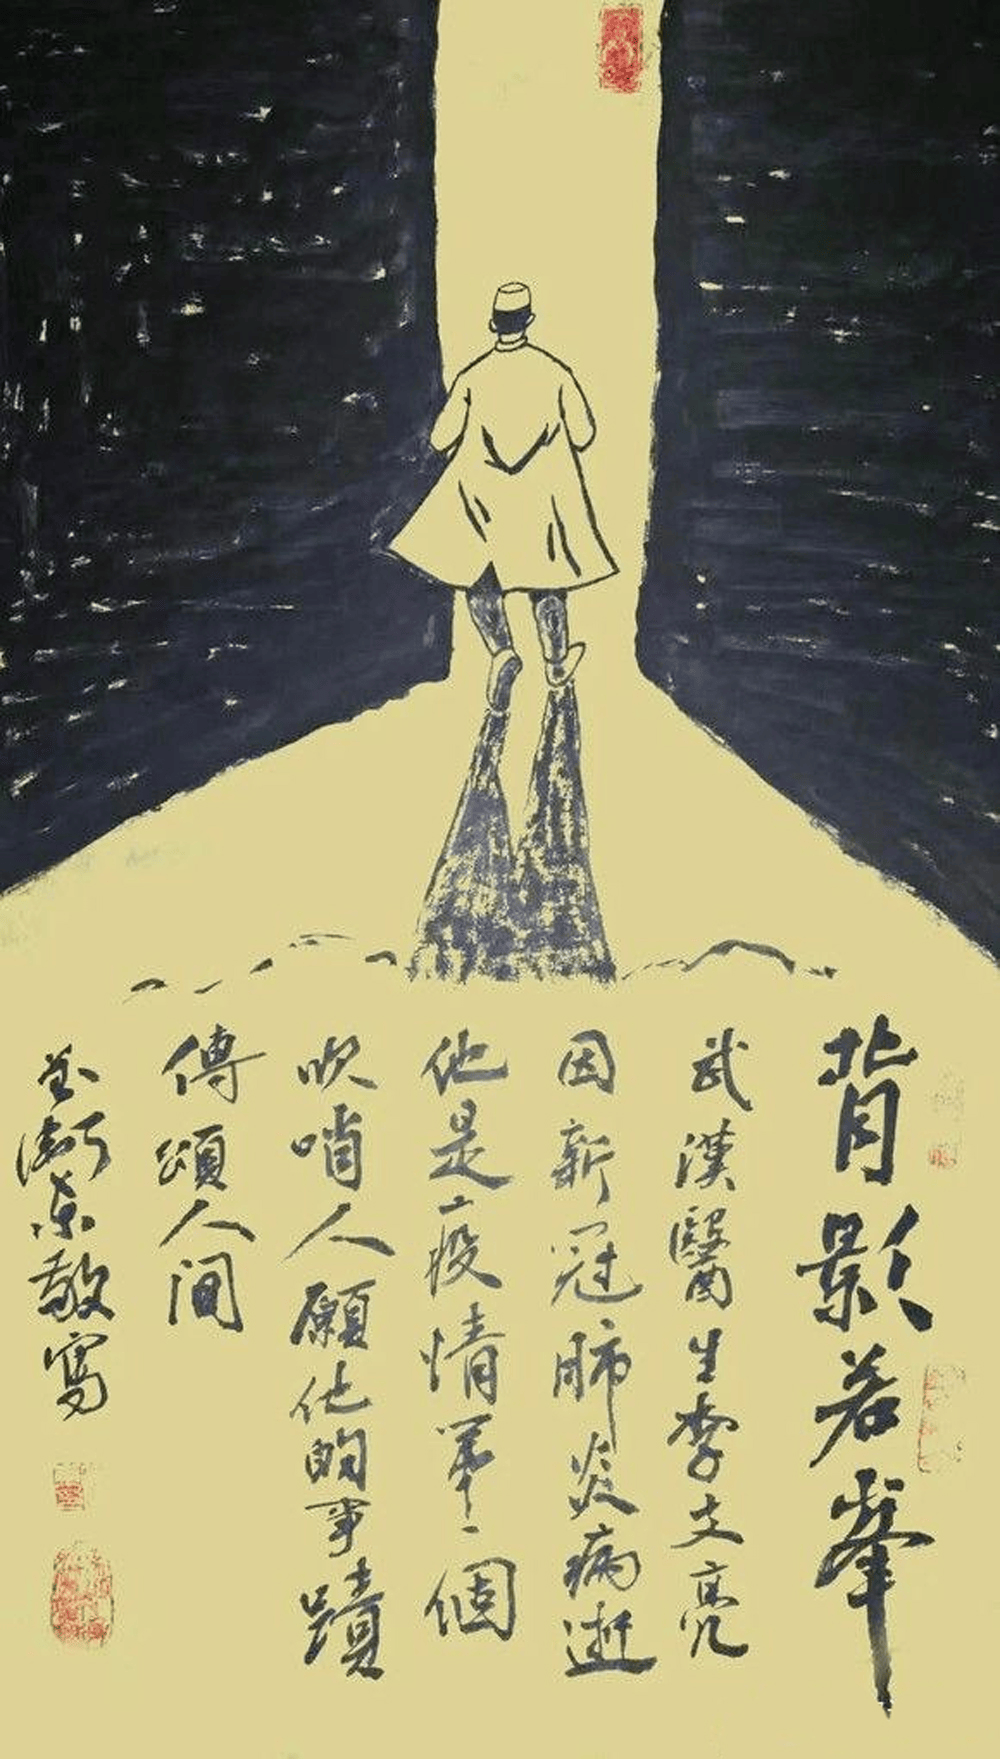 背影若峯
武漢醫生李文亮
因新冠肺炎病逝
他是疫情第一個
吹哨人願他的事蹟
傳頌人間
敬寫